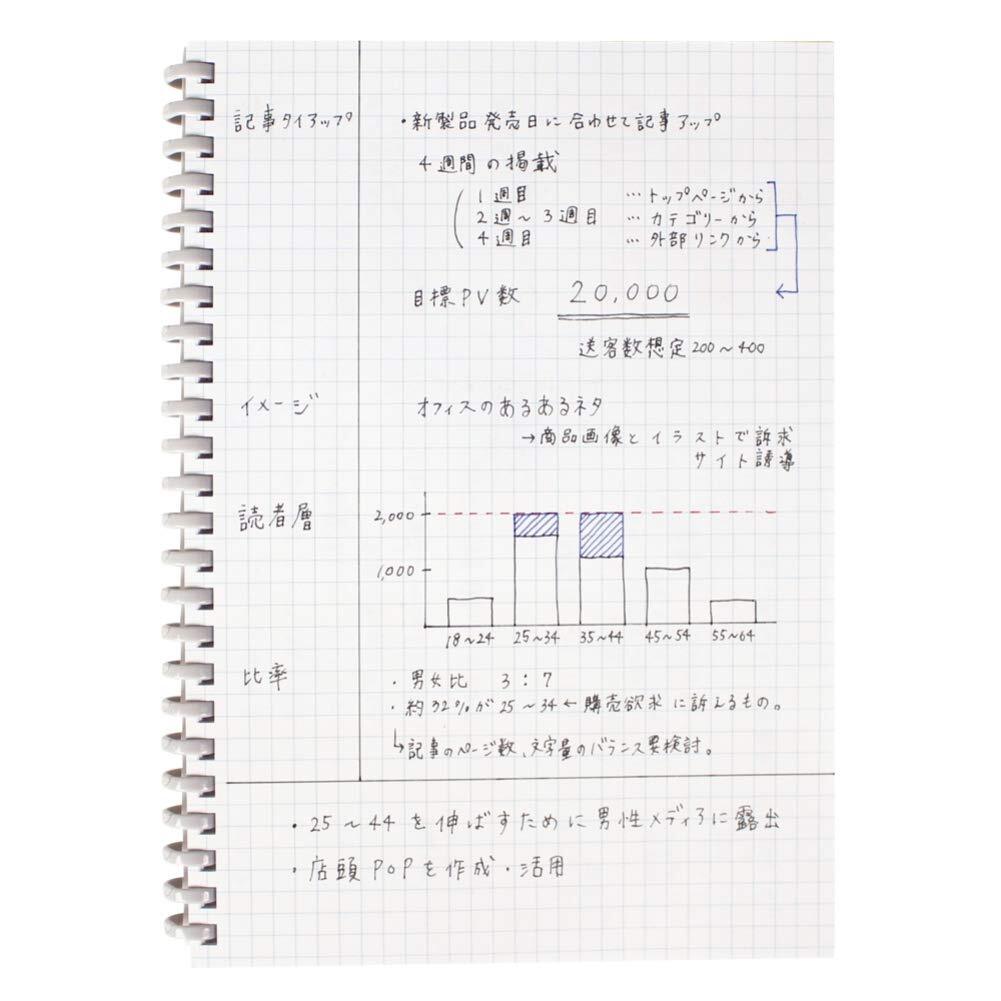 記事タイアップ ・新製品発売日に合わせて記事アップ
4週間の掲載
1週目 …トップページから
2週～3週目 …カテゴリーから
4週目 …外部リンクから
目標PV数 20,000
送客数想定200～400
イメージ オフィスのあるあるネタ
→商品画像とイラストで訴求
サイト誘導
読者層
2,000
1,000
18～24 25～34 35～44 45～54 55～64
比率 ・男女比 3:7
・約32%が25～34←購売欲求に訴えるもの。
↳記事のページ数、文字量のバランス要検討。
・25～44を伸ばすために男性メディアに露出
・店頭POPを作成・活用